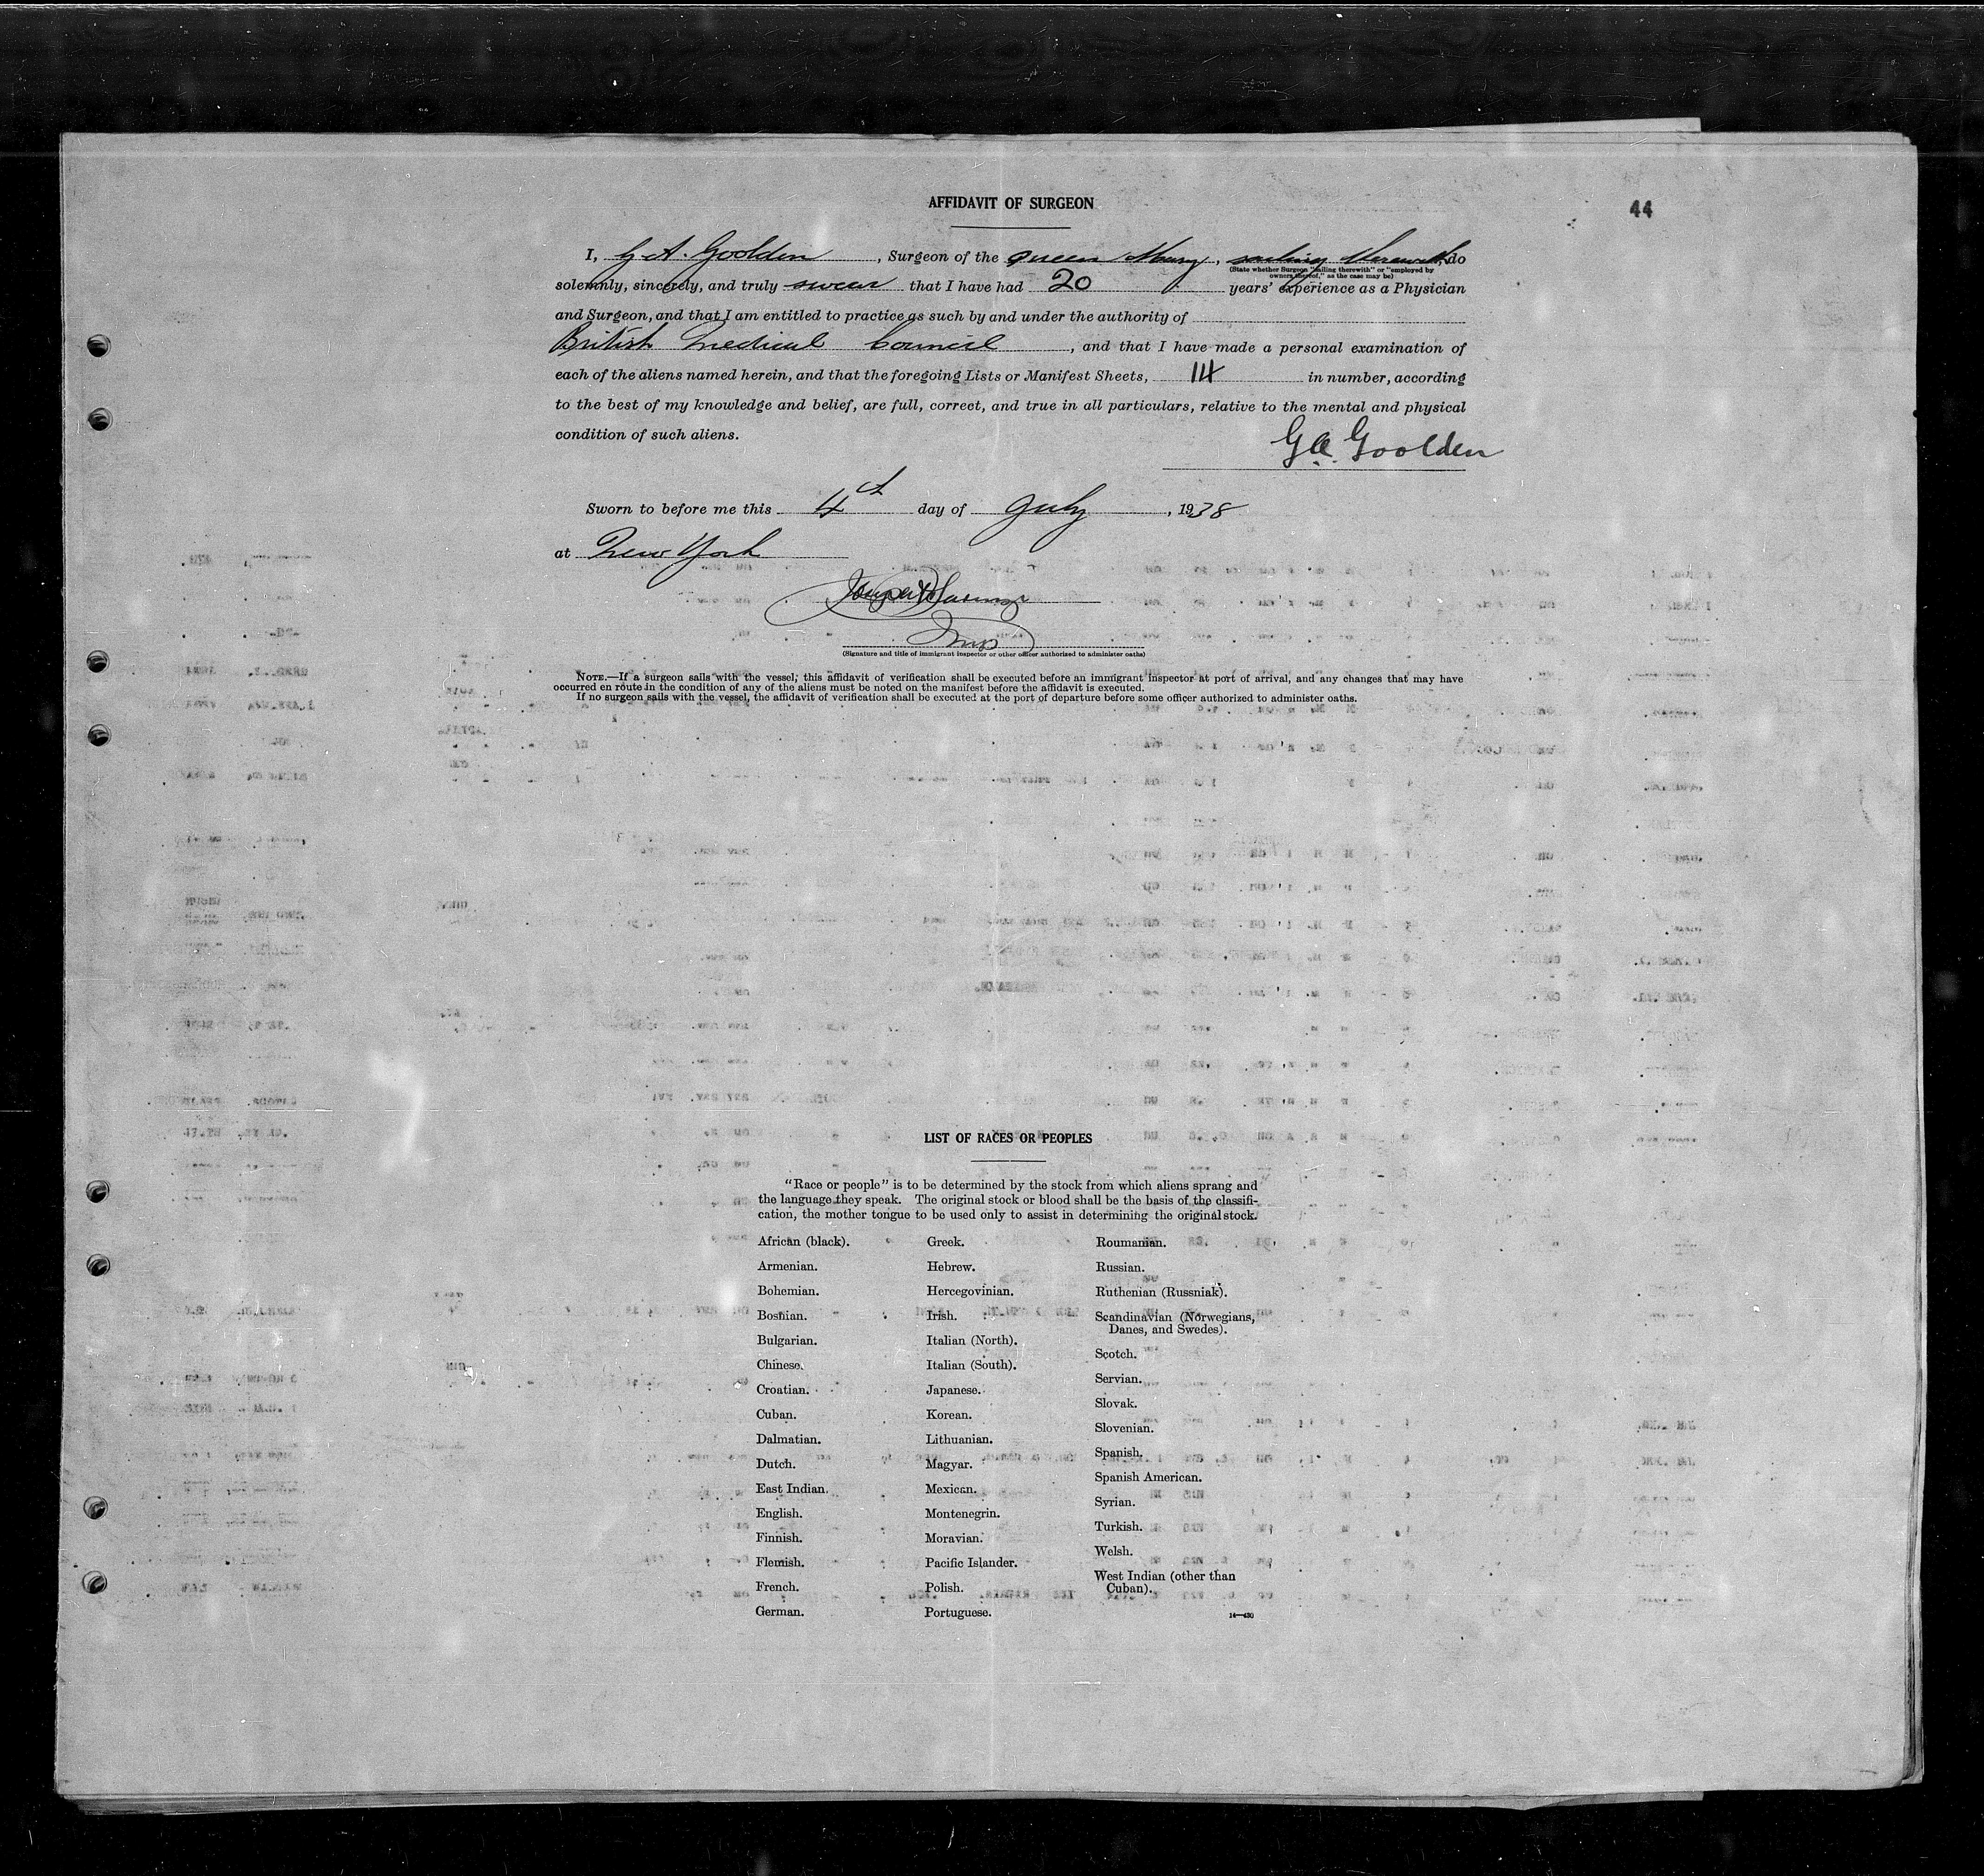 AFFIDAVIT OF SURGEON
44
I, G. A. Goolden, Surgeon of the Queen Mary, sailing therewith, do
(State whether Surgeon "sailing therewith" or "employed by
owners thereof," as the case may be)
solemnly, sincerely, and truly swear that I have had 20 years' experience as a Physician
and Surgeon, and that I am entitled to practice as such by and under the authority of
British Medical Council, and that I have made a personal examination of
each of the aliens named herein, and that the foregoing Lists or Manifest Sheets, in number, according
to the best of my knowledge and belief, are full, correct, and true in all particulars, relative to the mental and physical
condition of such aliens.
G.A. Goolden
Sworn to before me this 4th day of July, 1938
at New York
Insp
(Signature and title of immigrant inspector or other officer authorized to administer oaths)
NOTE.—If a surgeon sails with the vessel, this affidavit of verification shall be executed before an immigrant inspector at port of arrival, and any changes that may have
occurred en route in the condition of any of the aliens must be noted on the manifest before the affidavit is executed.
If no surgeon sails with the vessel, the affidavit of verification shall be executed at the port of departure before some officer authorized to administer oaths.
LIST OF RACES OR PEOPLES
"Race or people" is to be determined by the stock from which aliens sprang and
the language they speak. The original stock or blood shall be the basis of the classifi-
cation, the mother tongue to be used only to assist in determining the original stock.
African (black).
Armenian.
Bohemian.
Bosnian.
Bulgarian.
Chinese.
Croatian.
Cuban.
Dalmatian.
Dutch.
East Indian.
English.
Finnish.
Flemish.
French.
German.
Greek.
Hebrew.
Hercegovinian.
Irish.
Italian (North).
Italian (South).
Japanese.
Korean.
Lithuanian.
Magyar.
Mexican.
Montenegrin.
Moravian.
Pacific Islander.
Polish.
Portuguese.
Roumanian.
Russian.
Ruthenian (Russniak).
Scandinavian (Norwegians,
Danes, and Swedes).
Scotch.
Servian.
Slovak.
Slovenian.
Spanish.
Spanish American.
Syrian.
Turkish.
Welsh.
West Indian (other than
Cuban).
14—430